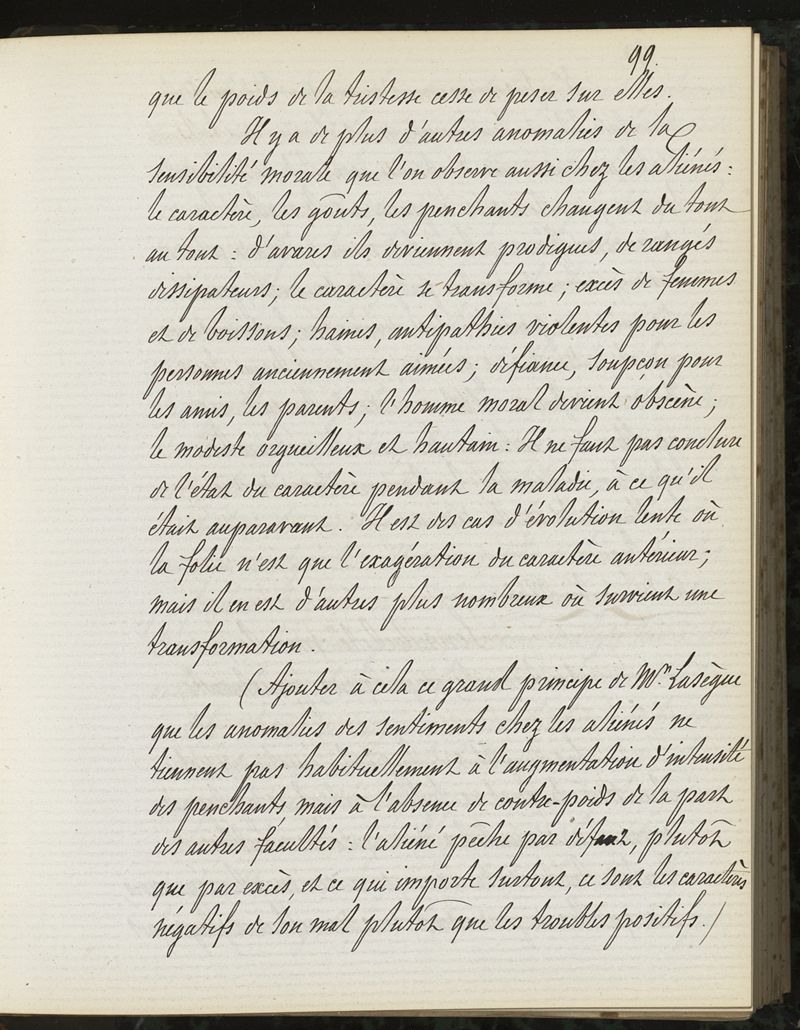 99.
que le poids de la tristesse cesse de peser sur elles.
Il y a de plus d'autres anomalies de la
sensibilité morale que l'on observe aussi chez les aliénés :
le caractère, les goûts, les penchants changent du tout
au tout : d'avares ils deviennent prodigues, de rangés
dissipateurs ; le caractère se transforme ; excès de femmes
et de boissons ; haines, antipathies violentes pour les
personnes anciennement aimées ; défiance, soupçon pour
les amis, les parents ; l'homme moral devient obscène ;
le modeste orgueilleux et hautain : Il ne faut pas conclure
de l'état du caractère pendant la maladie, à ce qu'il
était auparavant. Il est des cas d'évolution lente où
la folie n'est que l'exagération du caractère antérieur ;
mais il en est d'autres plus nombreux où survient une
transformation.
(Ajouter à cela ce grand principe de Mr. Lasègue
que les anomalies des sentiments chez les aliénés ne
tiennent pas habituellement à l'augmentation d'intensité
des penchants mais à l'absence de contre-poids de la part
des autres facultés : l'aliéné pêche par défaut, plutôt
que par excès, et ce qui importe surtout, ce sont les caractères
négatifs de son mal plutôt que les troubles positifs.)